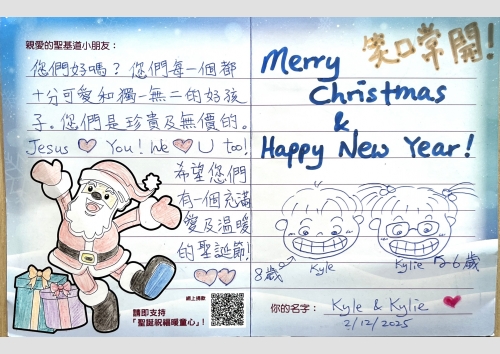 親愛的聖基道小朋友：
您們好嗎？您們每一個都
十分可愛和獨一無二的好孩
子。您們是珍貴及無價的。
Jesus ♥ You! We ♥ U too!
希望您們
有一個充滿
愛及溫暖
的聖誕節!
網上捐款
請即支持
「聖誕祝福暖童心」!
笑口常開!
Merry
Christmas
&
Happy New Year!
8歲
Kyle
Kylie
6歲
你的名字：Kyle & Kylie ♥
2/12/2025